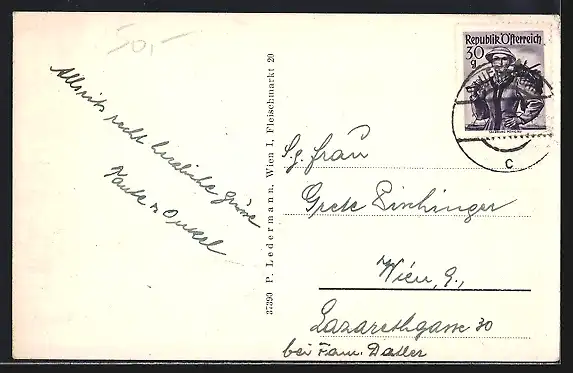 50,-
Allseits recht herzliche Grüsse
Tante u Onkel
37390 P. Ledermann, Wien I, Fleischmarkt 20
Republik Österreich
30
g
C
S.g. Frau
Grete Pischinger
Wien, 9.,
Lazarethgasse 30
bei Fam. Datler